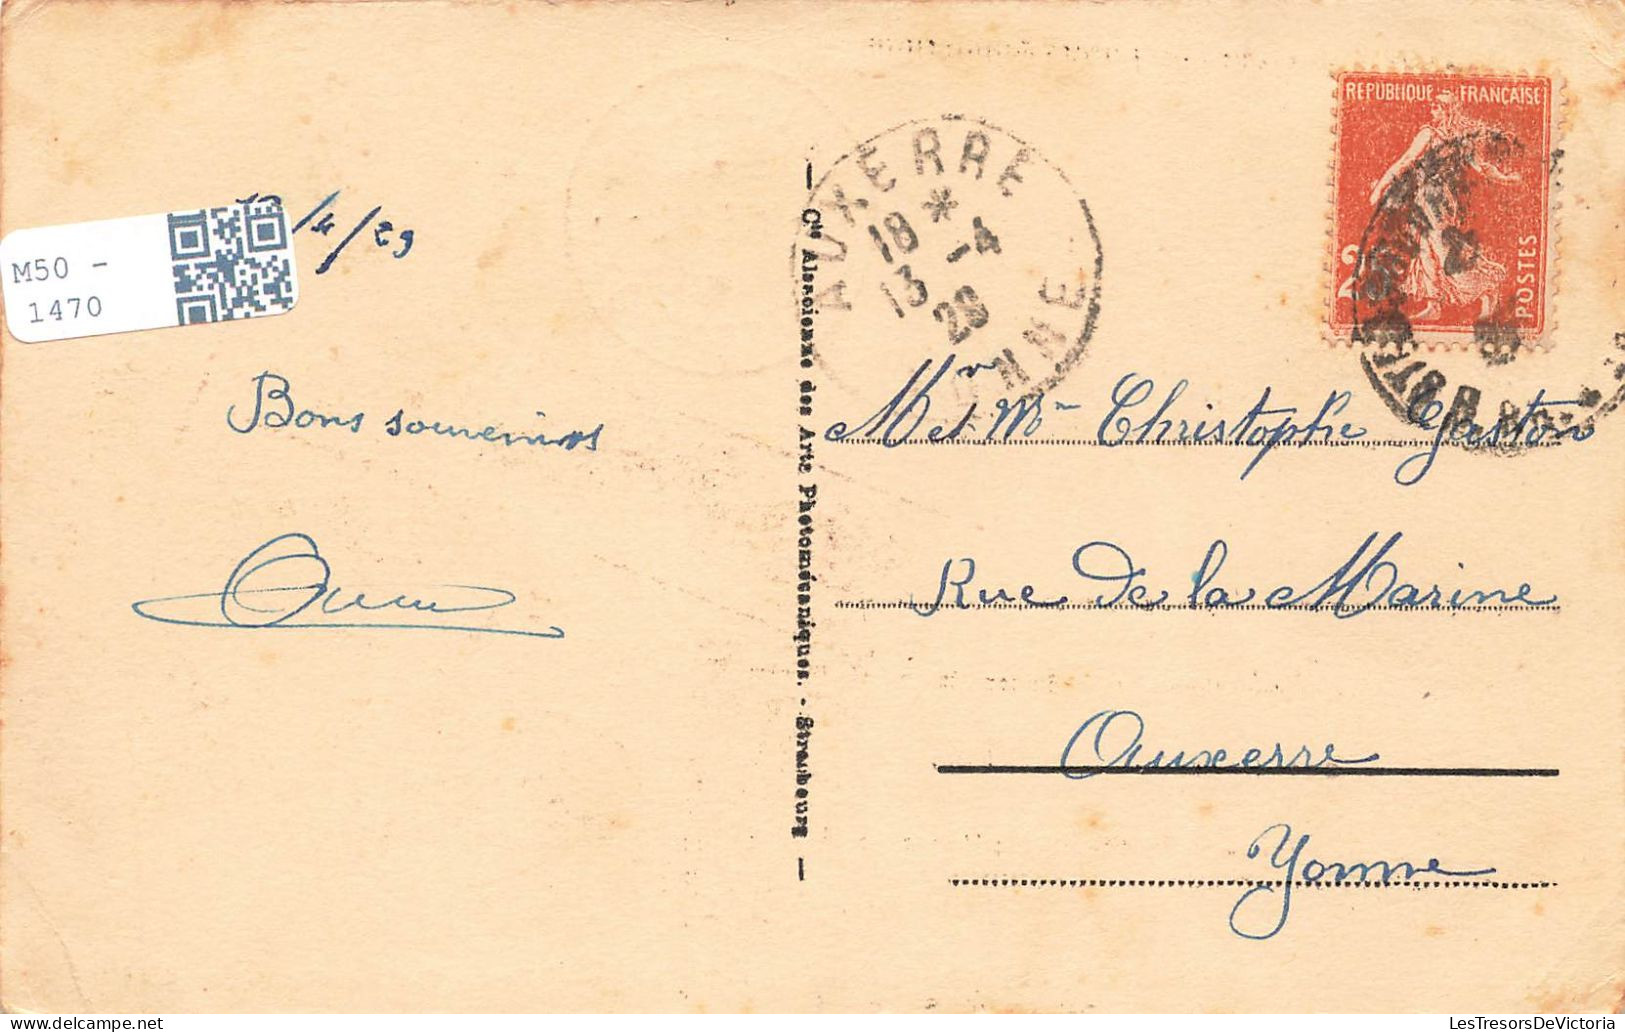 /4/29
M50 -
1470
Bons souvenirs
— Cie Alsacienne des Arts Photomécaniques. - Strasbourg —
AUXERRE
18 * -4
13
29
YONNE
REPUBLIQUE FRANÇAISE
2
POSTES
Mr et Mme Christophe Gaston
Rue de la Marine
Auxerre
Yonne
LesTresorsDeVictoria